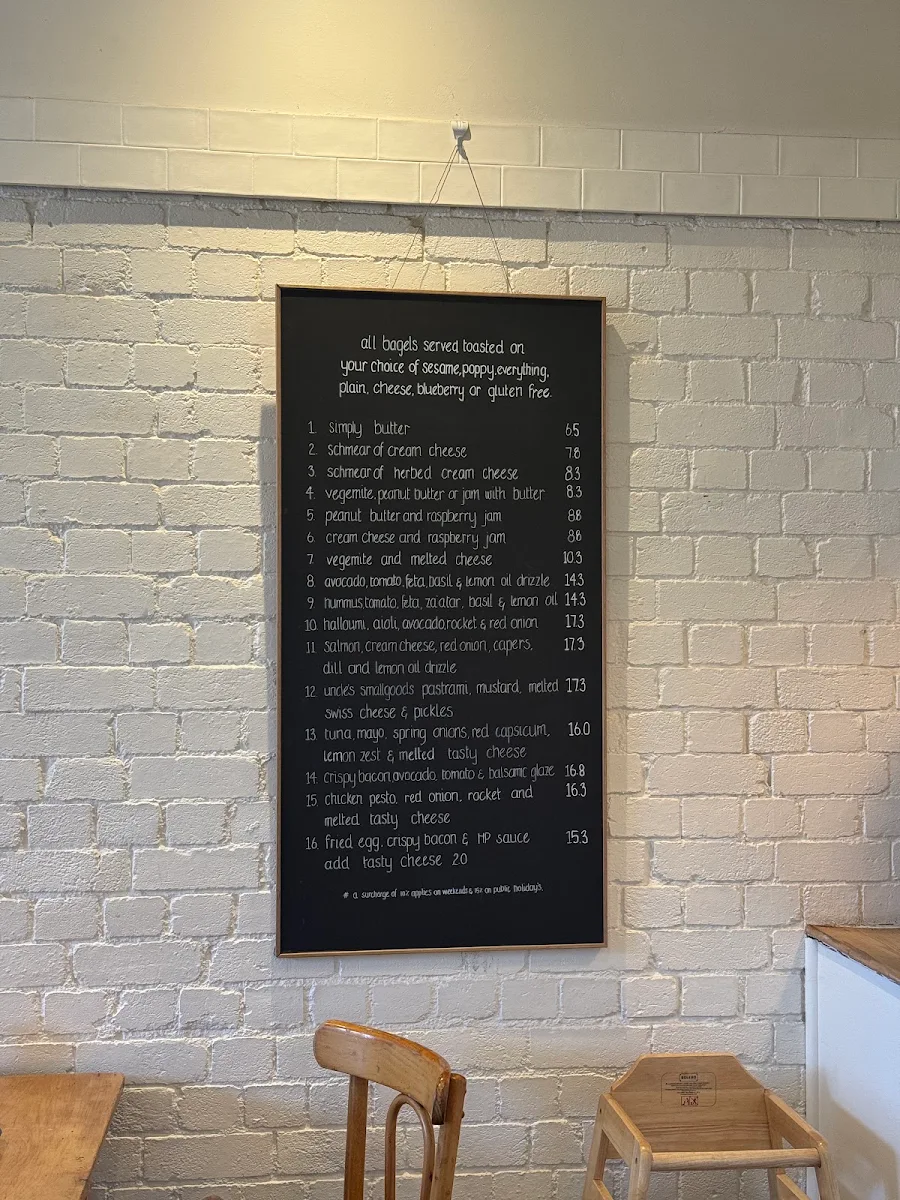 all bagels served toasted on
your choice of sesame, poppy, everything,
plain, cheese, blueberry or gluten free.
1. simply butter 6.5
2. schmear of cream cheese 7.8
3. schmear of herbed cream cheese 8.3
4. vegemite, peanut butter or jam with butter 8.3
5. peanut butter and raspberry jam 8.8
6. cream cheese and raspberry jam 8.8
7. vegemite and melted cheese 10.3
8. avocado, tomato, feta, basil & lemon oil drizzle 14.3
9. hummus, tomato, feta, za'atar, basil & lemon oil 14.3
10. halloumi, aioli, avocado, rocket & red onion 17.3
11. salmon, cream cheese, red onion, capers, 17.3
dill and lemon oil drizzle
12. uncle's smallgoods pastrami, mustard, melted 17.3
swiss cheese & pickles
13. tuna, mayo, spring onions, red capsicum, 16.0
lemon zest & melted tasty cheese
14. crispy bacon, avocado, tomato & balsamic glaze 16.8
15. chicken pesto, red onion, rocket and 16.3
melted tasty cheese
16. fried egg, crispy bacon & HP sauce 15.3
add tasty cheese 2.0
# a surcharge of 10% applies on weekends & 15% on public holidays.